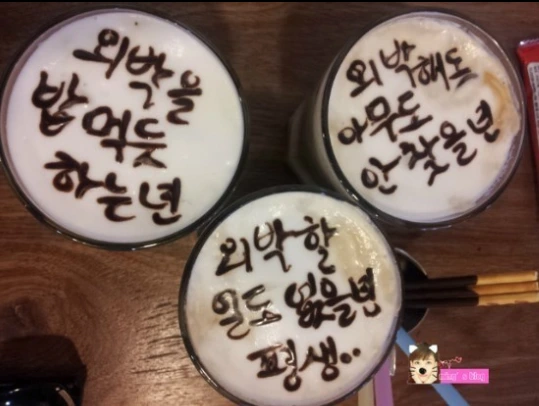 외박을
밥 먹듯
하는년
외박해도
아무도
안 찾을년
외박 할
일도 없을년
평생..